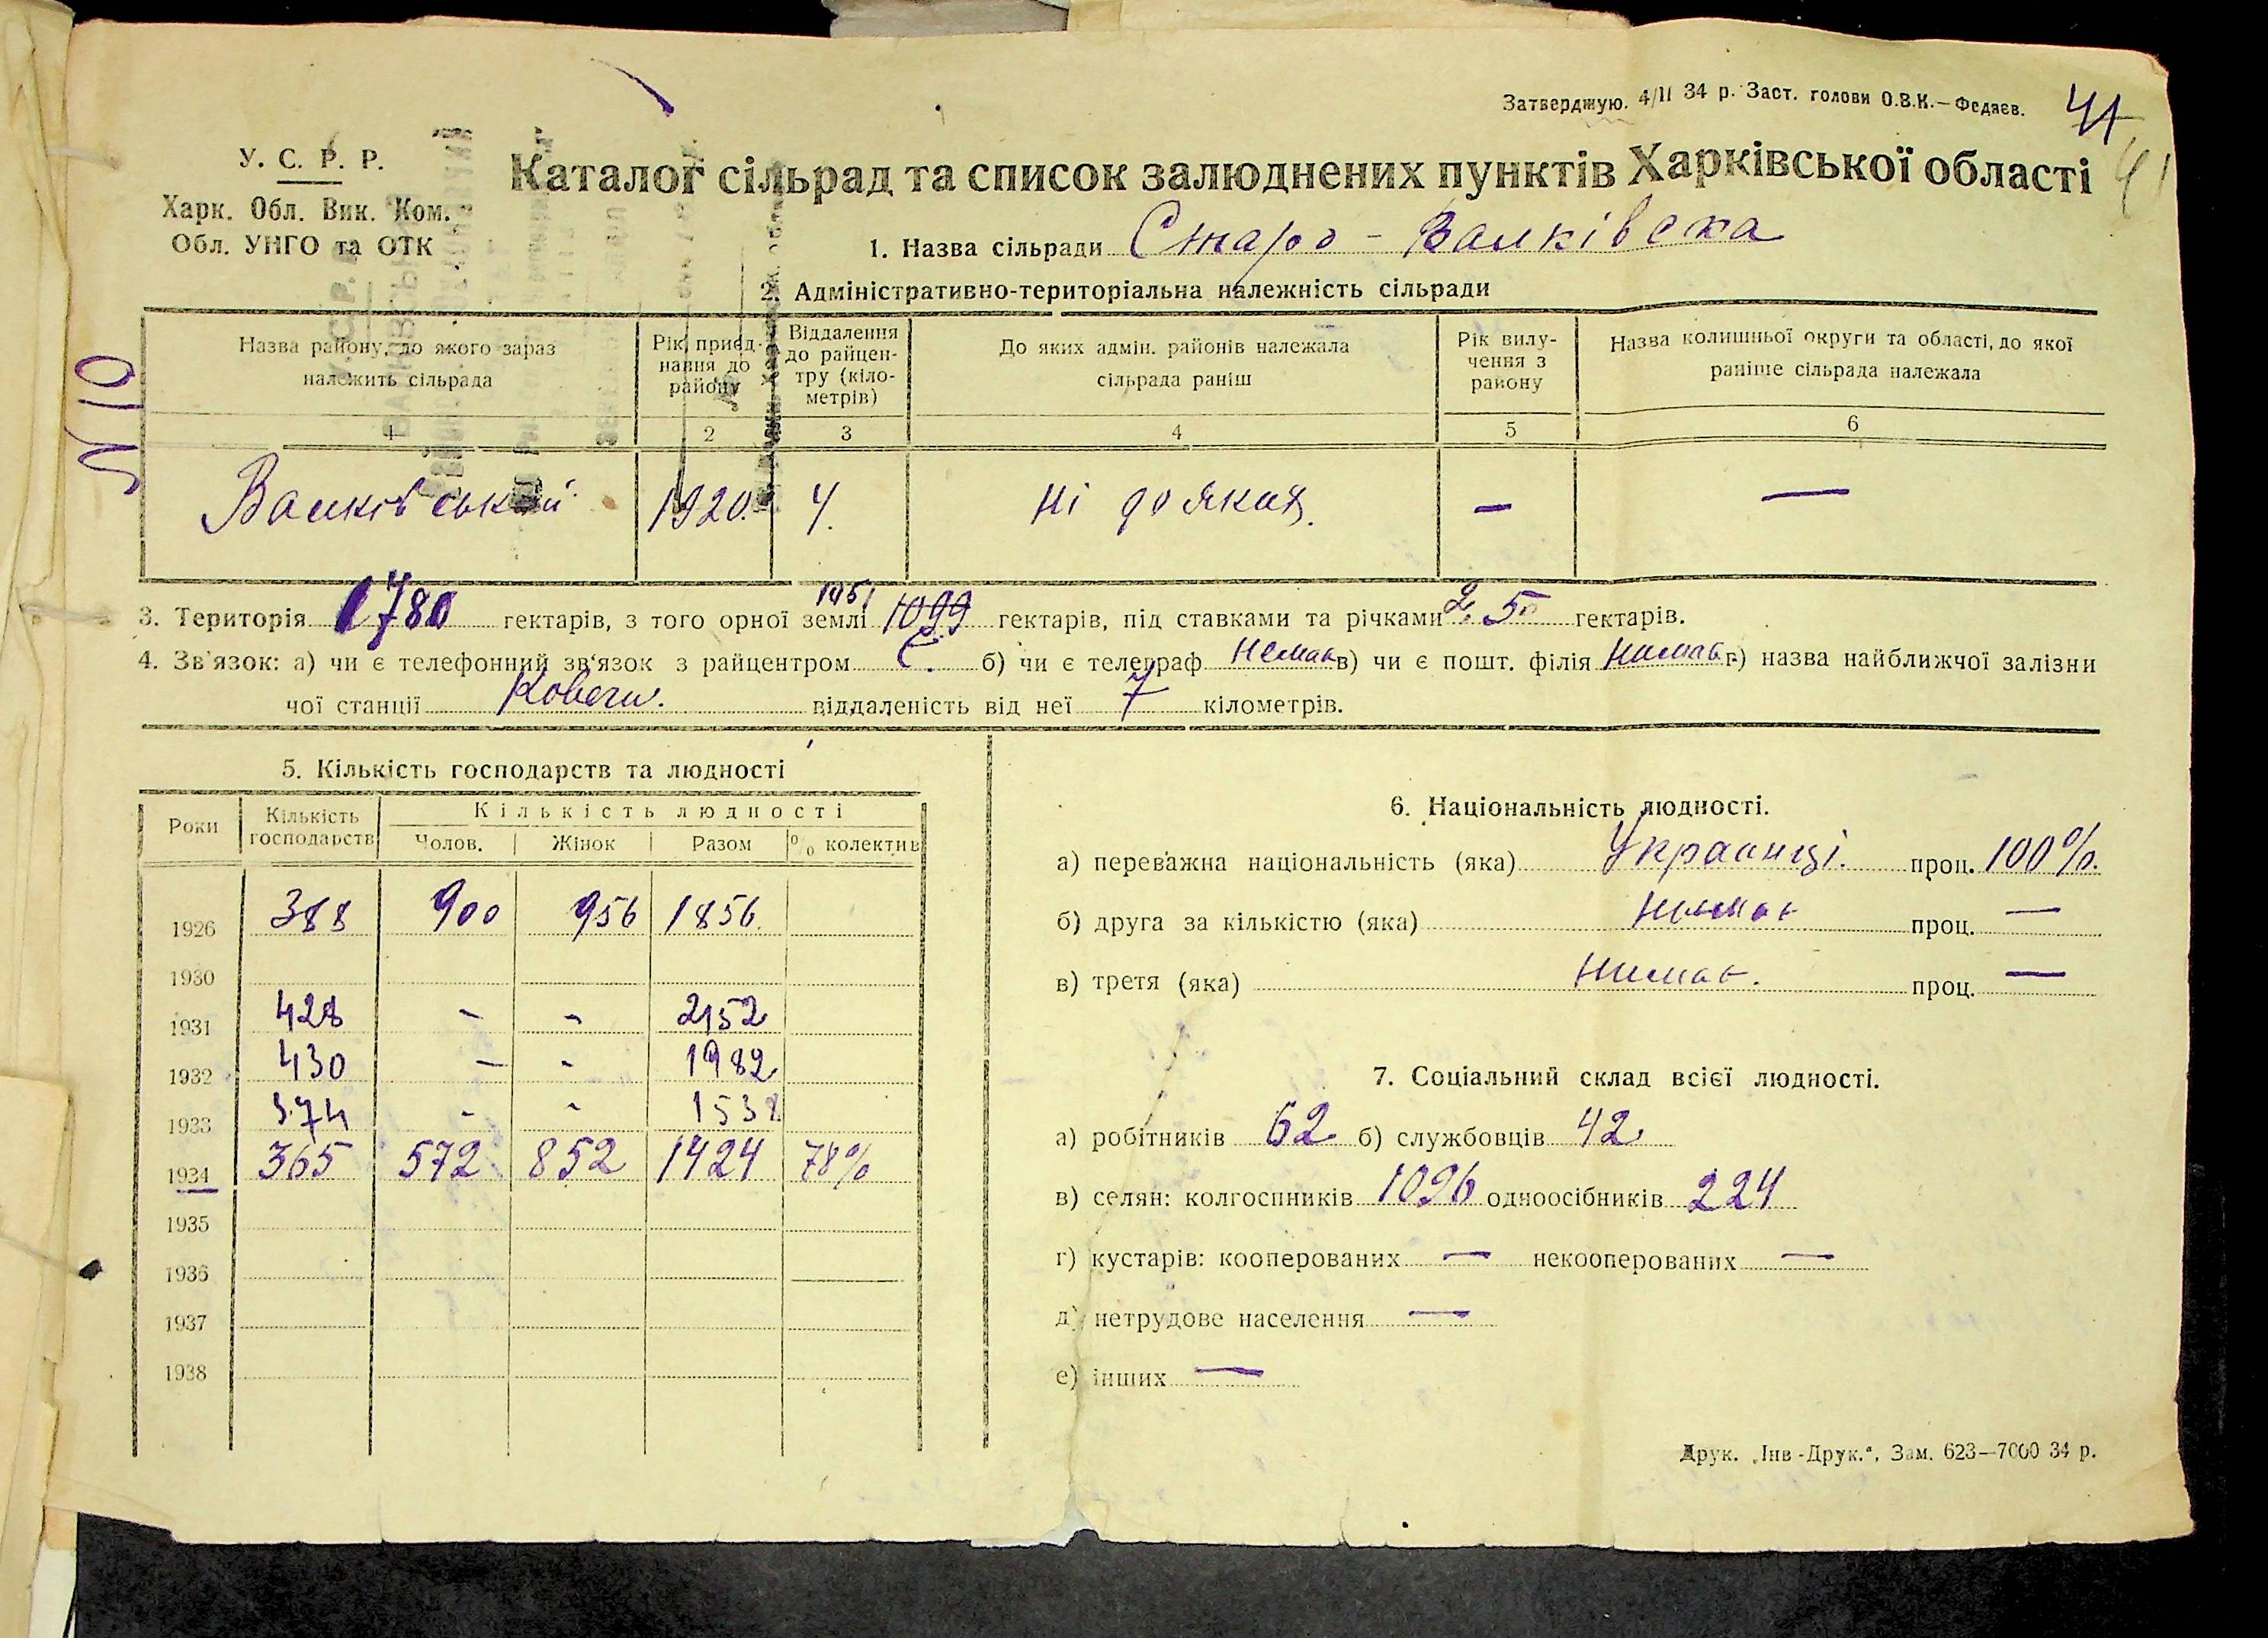 Затверджую. 4/II 34 р. Заст. голови О.В.К.—Федяєв.
41
41
У. С. Р. Р.
Харк. Обл. Вик. Ком.
Обл. УНГО та ОТК
Каталог сільрад та список залюднених пунктів Харківської області
1. Назва сільради Старо-Валківська
2. Адміністративно-територіальна належність сільради
N 10
Назва району, до якого зараз належить сільрада
Рік приєднання до району
Віддалення до райцентру (кілометрів)
До яких адмін. районів належала сільрада раніш
Рік вилучення з району
Назва колишньої округи та області, до якої раніше сільрада належала
1 2 3 4 5 6
Валківський 1920. 4. ні до яких. — —
3. Територія 1780 гектарів, з того орної землі 1451 1099 гектарів, під ставками та річками 2,5 гектарів.
4. Зв'язок: а) чи є телефонний зв'язок з райцентром Є. б) чи є телеграф немає в) чи є пошт. філія немає г) назва найближчої залізни
чої станції Ковяги. віддаленість від неї 7 кілометрів.
5. Кількість господарств та людності
Роки Кількість господарств Кількість людності
Чолов. Жінок Разом % колектив
1926 388 900 956 1856.
1930
1931 428 - - 2152
1932 430 — - 1982
1933 374 - - 1538
1934 365 572 852 1424 78%
1935
1936
1937
1938
6. Національність людності.
а) переважна національність (яка) Українці. проц. 100%.
б) друга за кількістю (яка) немає проц. —
в) третя (яка) немає. проц. —
7. Соціальний склад всієї людності.
а) робітників 62 б) службовців 42
в) селян: колгоспників 1096 одноосібників 224
г) кустарів: кооперованих — некооперованих —
д) нетрудове населення —
е) інших —
Друк. „Інв-Друк.“, Зам. 623—7000 34 р.